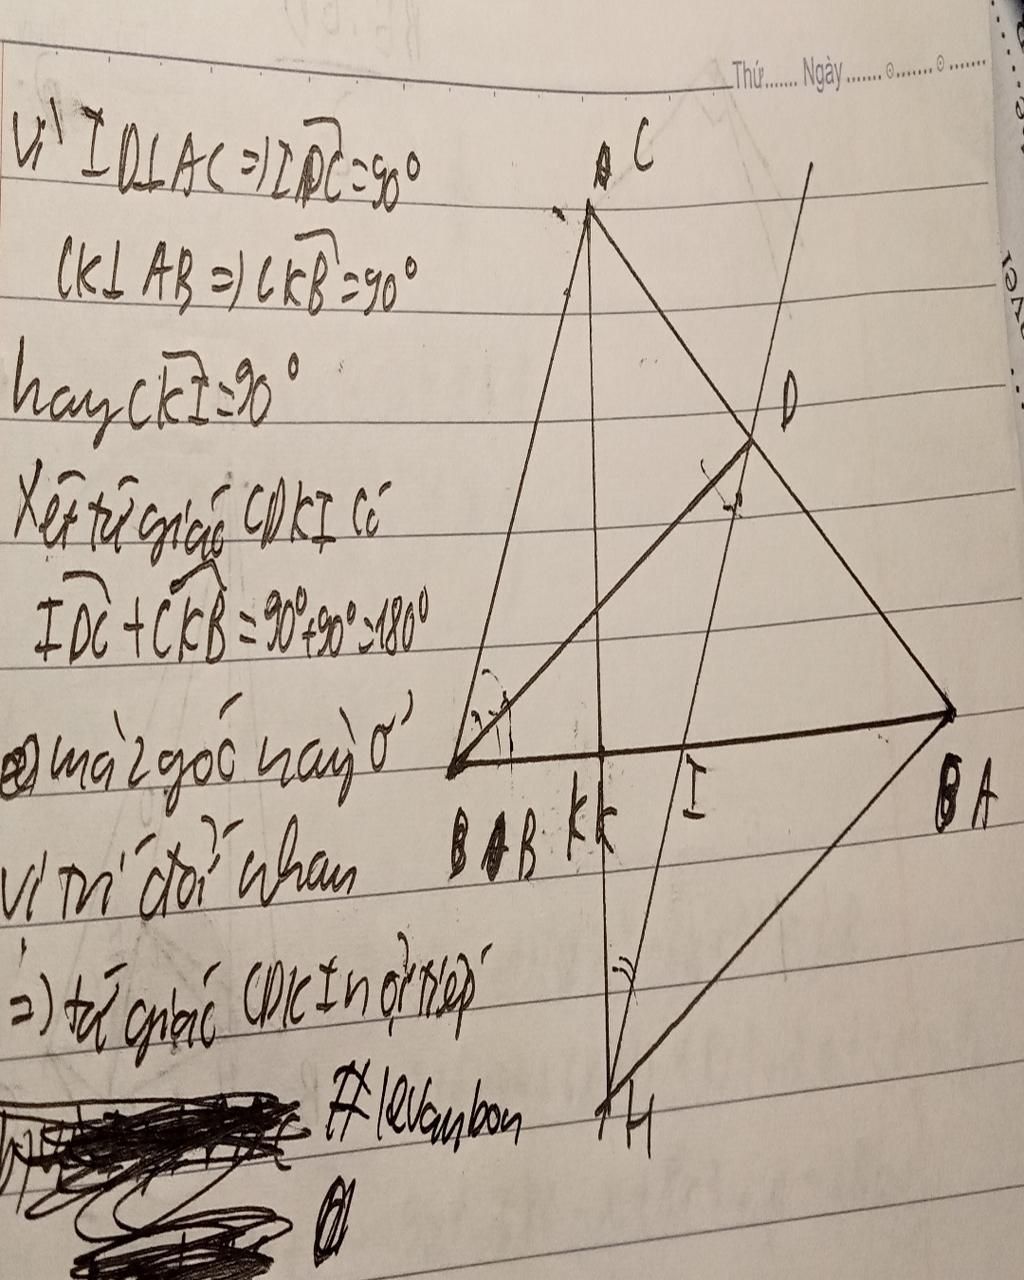 Thứ....... Ngày.......
Vì ID⊥AC=)IDC=90°
CK⊥ AB=)CKB=90°
hay CKI=90°
Xét tứ giác CDKI Có
IDC+CKB=90°+90°=180°
mà 2 góc này ở
Vị trí đối nhau
=) tứ giác CDKI nội tiếp
#levanbon
C
D
B
K K
I
A
H